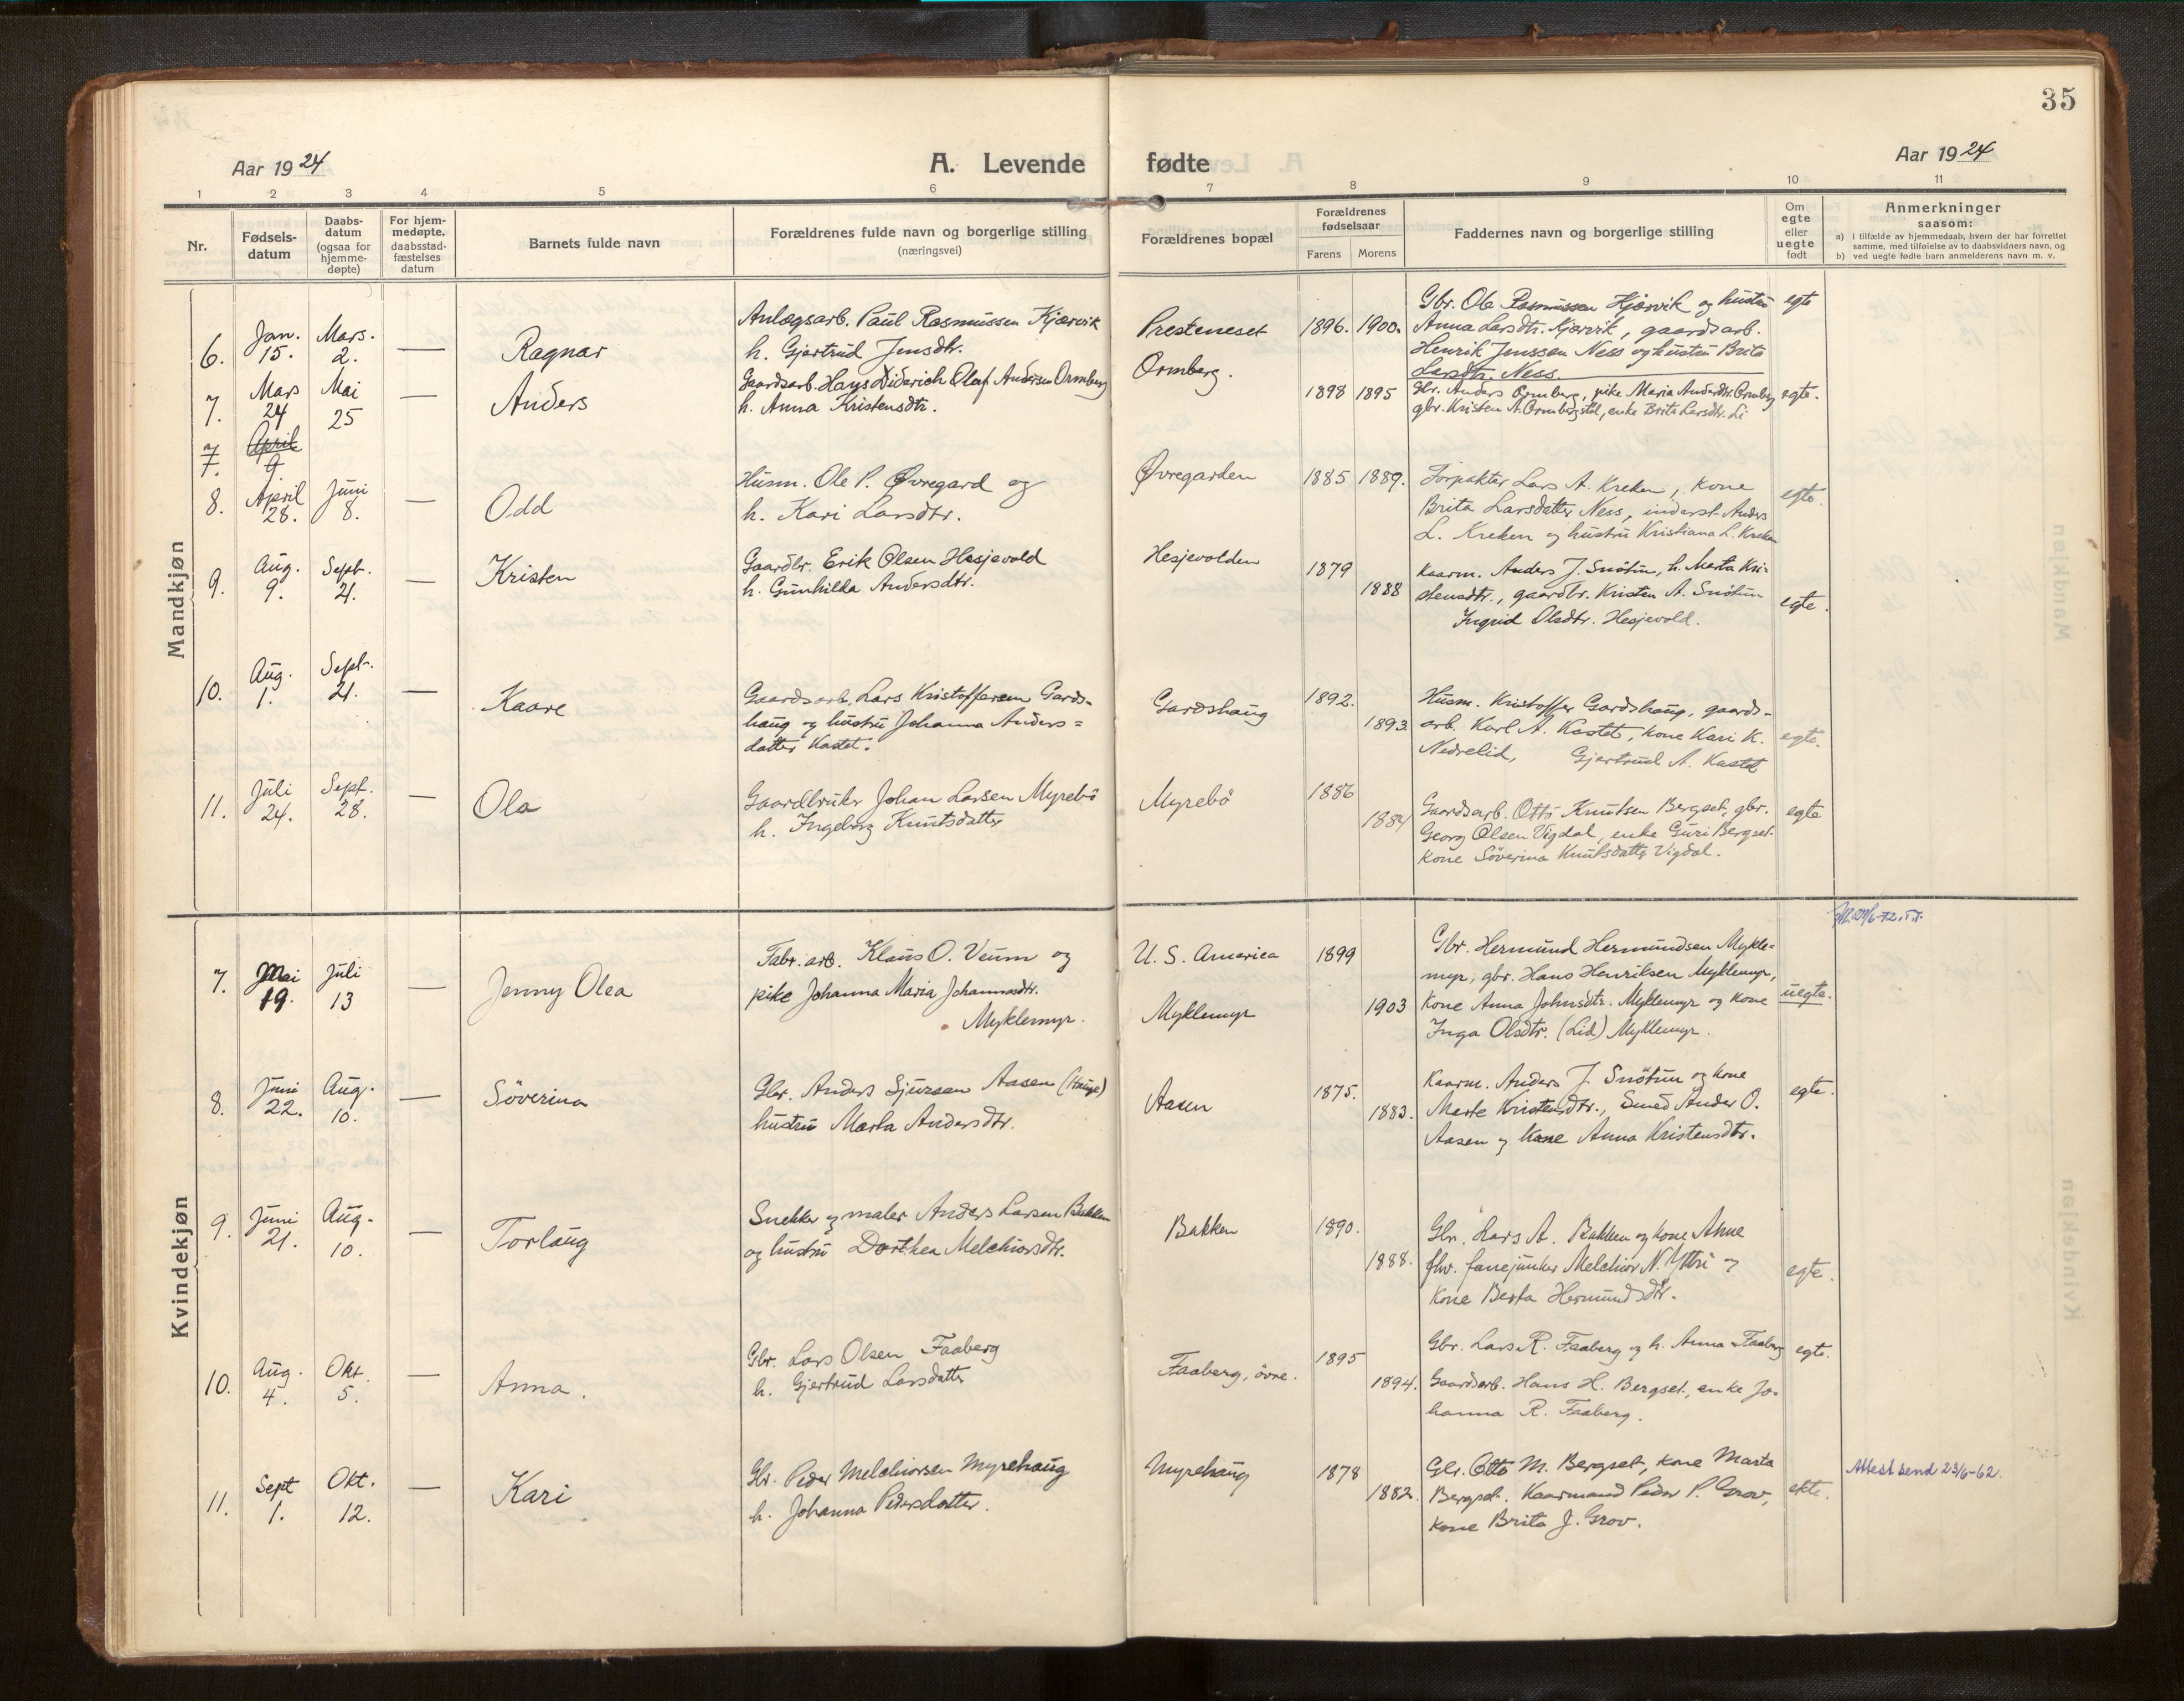 35
Aar 1924
A. Levende
fødte
Aar 1924
1 2 3 4 5 6 7 8 9 10 11
Nr.
Fødsels-
datum
Daabs-
datum
(ogsaa for
hjemme-
døpte)
For hjem-
medøpte,
daabsstad-
fæstelses
datum
Barnets fulde navn
Forældrenes fulde navn og borgerlige stilling
(næringsvei)
Forældrenes bopæl
Forældrenes
fødselsaar
Farens Morens
Faddernes navn og borgerlige stilling
Om
egte
eller
uegte
født
Anmerkninger
saasom:
a) i tilfælde av hjemmedaab, hvem der har forrettet
samme, med tilføielse av to daabsvidners navn, og
b) ved uegte fødte barn anmelderens navn m. v.
Mandkjøn
6. Jan. 15. Mars. 2. — Ragnar
Anlægsarb. Paul Rasmussen Kjærvik
h. Gjertrud Jensdtr.
Presteneset 1896. 1900.
Gbr. Ole Rasmussen Kjærvik og hustru
Anna Larsdtr. Kjærvik, gaardsarb.
Henrik Jenssen Ness og hustru Brita
Larsdtr. Ness.
egte
7. Mars 24 Mai 25 — Anders
Gaardsarb. Hans Diderich Olaf Andersen Ormberg
h. Anna Kristensdtr.
Ormberg. 1898 1895
Gbr. Anders Ormberg, pike Maria Andersdtr. Ormberg
gbr. Kristen A. Ormbergstøl, enke Brita Larsdtr. Li
egte.
7. April 9
8. April 28. Juni 8. — Odd
Husm. Ole P. Øvregard og
h. Kari Larsdtr.
Øvregarden 1885 1889.
Forpakter Lars A. Kreken, kone
Brita Larsdatter Ness, inderst Anders
L. Kreken og hustru Kristiana L. Kreken
egte.
9. Aug. 9. Sept. 21. — Kristen
Gaardbr. Erik Olsen Hesjevold
h. Gunhilda Andersdtr.
Hesjevolden 1879 1888
Kaarm. Anders J. Snøtun, h. Marta Kri-
stensdtr., gaardbr. Kristen A. Snøtun
Ingrid Olsdtr. Hesjevold.
egte.
10. Aug. 1. Sept. 21. — Kaare
Gaardsarb. Lars Kristoffersen Gards-
haug og hustru Johanna Anders=
datter Kastet.
Gardshaug 1892. 1893.
Husm. Kristoffer Gardshaug, gaards-
arb. Karl A. Kastet, kone Kari K.
Nedrelid, Gjertrud A. Kastet
egte.
11. Juli 24. Sept. 28. — Ola
Gaardbruker Johan Larsen Myrebö
h. Ingeborg Knutsdatter
Myrebö 1886 1884
Gaardsarb. Otto Knutsen Bergset, gbr.
Georg Olsen Vigdal, enke Guri Bergset
kone Söverina Knutsdatter Vigdal.
egte
Kvindekjøn
7. Mai 19. Juli 13 — Jenny Olea
Fabr. arb. Klaus O. Veum og
pike Johanna Maria Johannesdtr.
Myklemyr.
U. S. America 1899
Myklemyr 1903
Gbr. Hermund Hermundsen Mykle-
myr, gbr. Hans Henriksen Myklemyr,
kone Anna Johnsdtr. Myklemyr og kone
Inga Olsdtr. (Lid) Myklemyr.
uegte.
8. Juni 22. Aug. 10. — Söverina
Gbr. Anders Sjursen Aasen (Hauge)
hustru Marta Andersdtr.
Aasen 1875. 1883.
Kaarm. Anders J. Snötun og kone
Marte Kristensdtr., Smed Ander O.
Aasen og kone Anna Kristensdtr.
egte.
9. Juni 21. Aug. 10. — Torlaug
Snekker og maler Anders Larsen Bakken
og hustru Dorthea Melchiorsdtr.
Bakken 1890. 1888.
Gbr. Lars A. Bakken og kone Anne
fhv. fanejunker Melchior N. Yttri og
kone Berta Hermundsdtr.
egte.
10. Aug. 4. Okt. 5. — Anna.
Gbr. Lars Olsen Faaberg
h. Gjertrud Larsdatter
Faaberg, övre. 1895 1894.
Gbr. Lars R. Faaberg og h. Anna Faaberg
Gaardsarb. Hans H. Bergset, enke Jo-
hanna R. Faaberg.
egte.
11. Sept 1. Okt. 12. — Kari
Gbr. Peder Melchiorsen Myrehaug
h. Johanna Pedersdatter.
Myrehaug 1878 1882.
Gbr. Otto M. Bergset, kone Marta
Bergset. Kaarmand Peder P. Grov,
kone Brita J. Grov.
ekte.
Attest send 23/6-62.